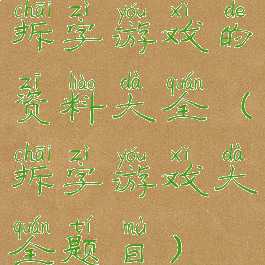 chāi zì yóu xì de
拆字游戏的
zī liào dà quán
资料大全（
chāi zì yóu xì dà
拆字游戏大
quán tí mù
全题目）